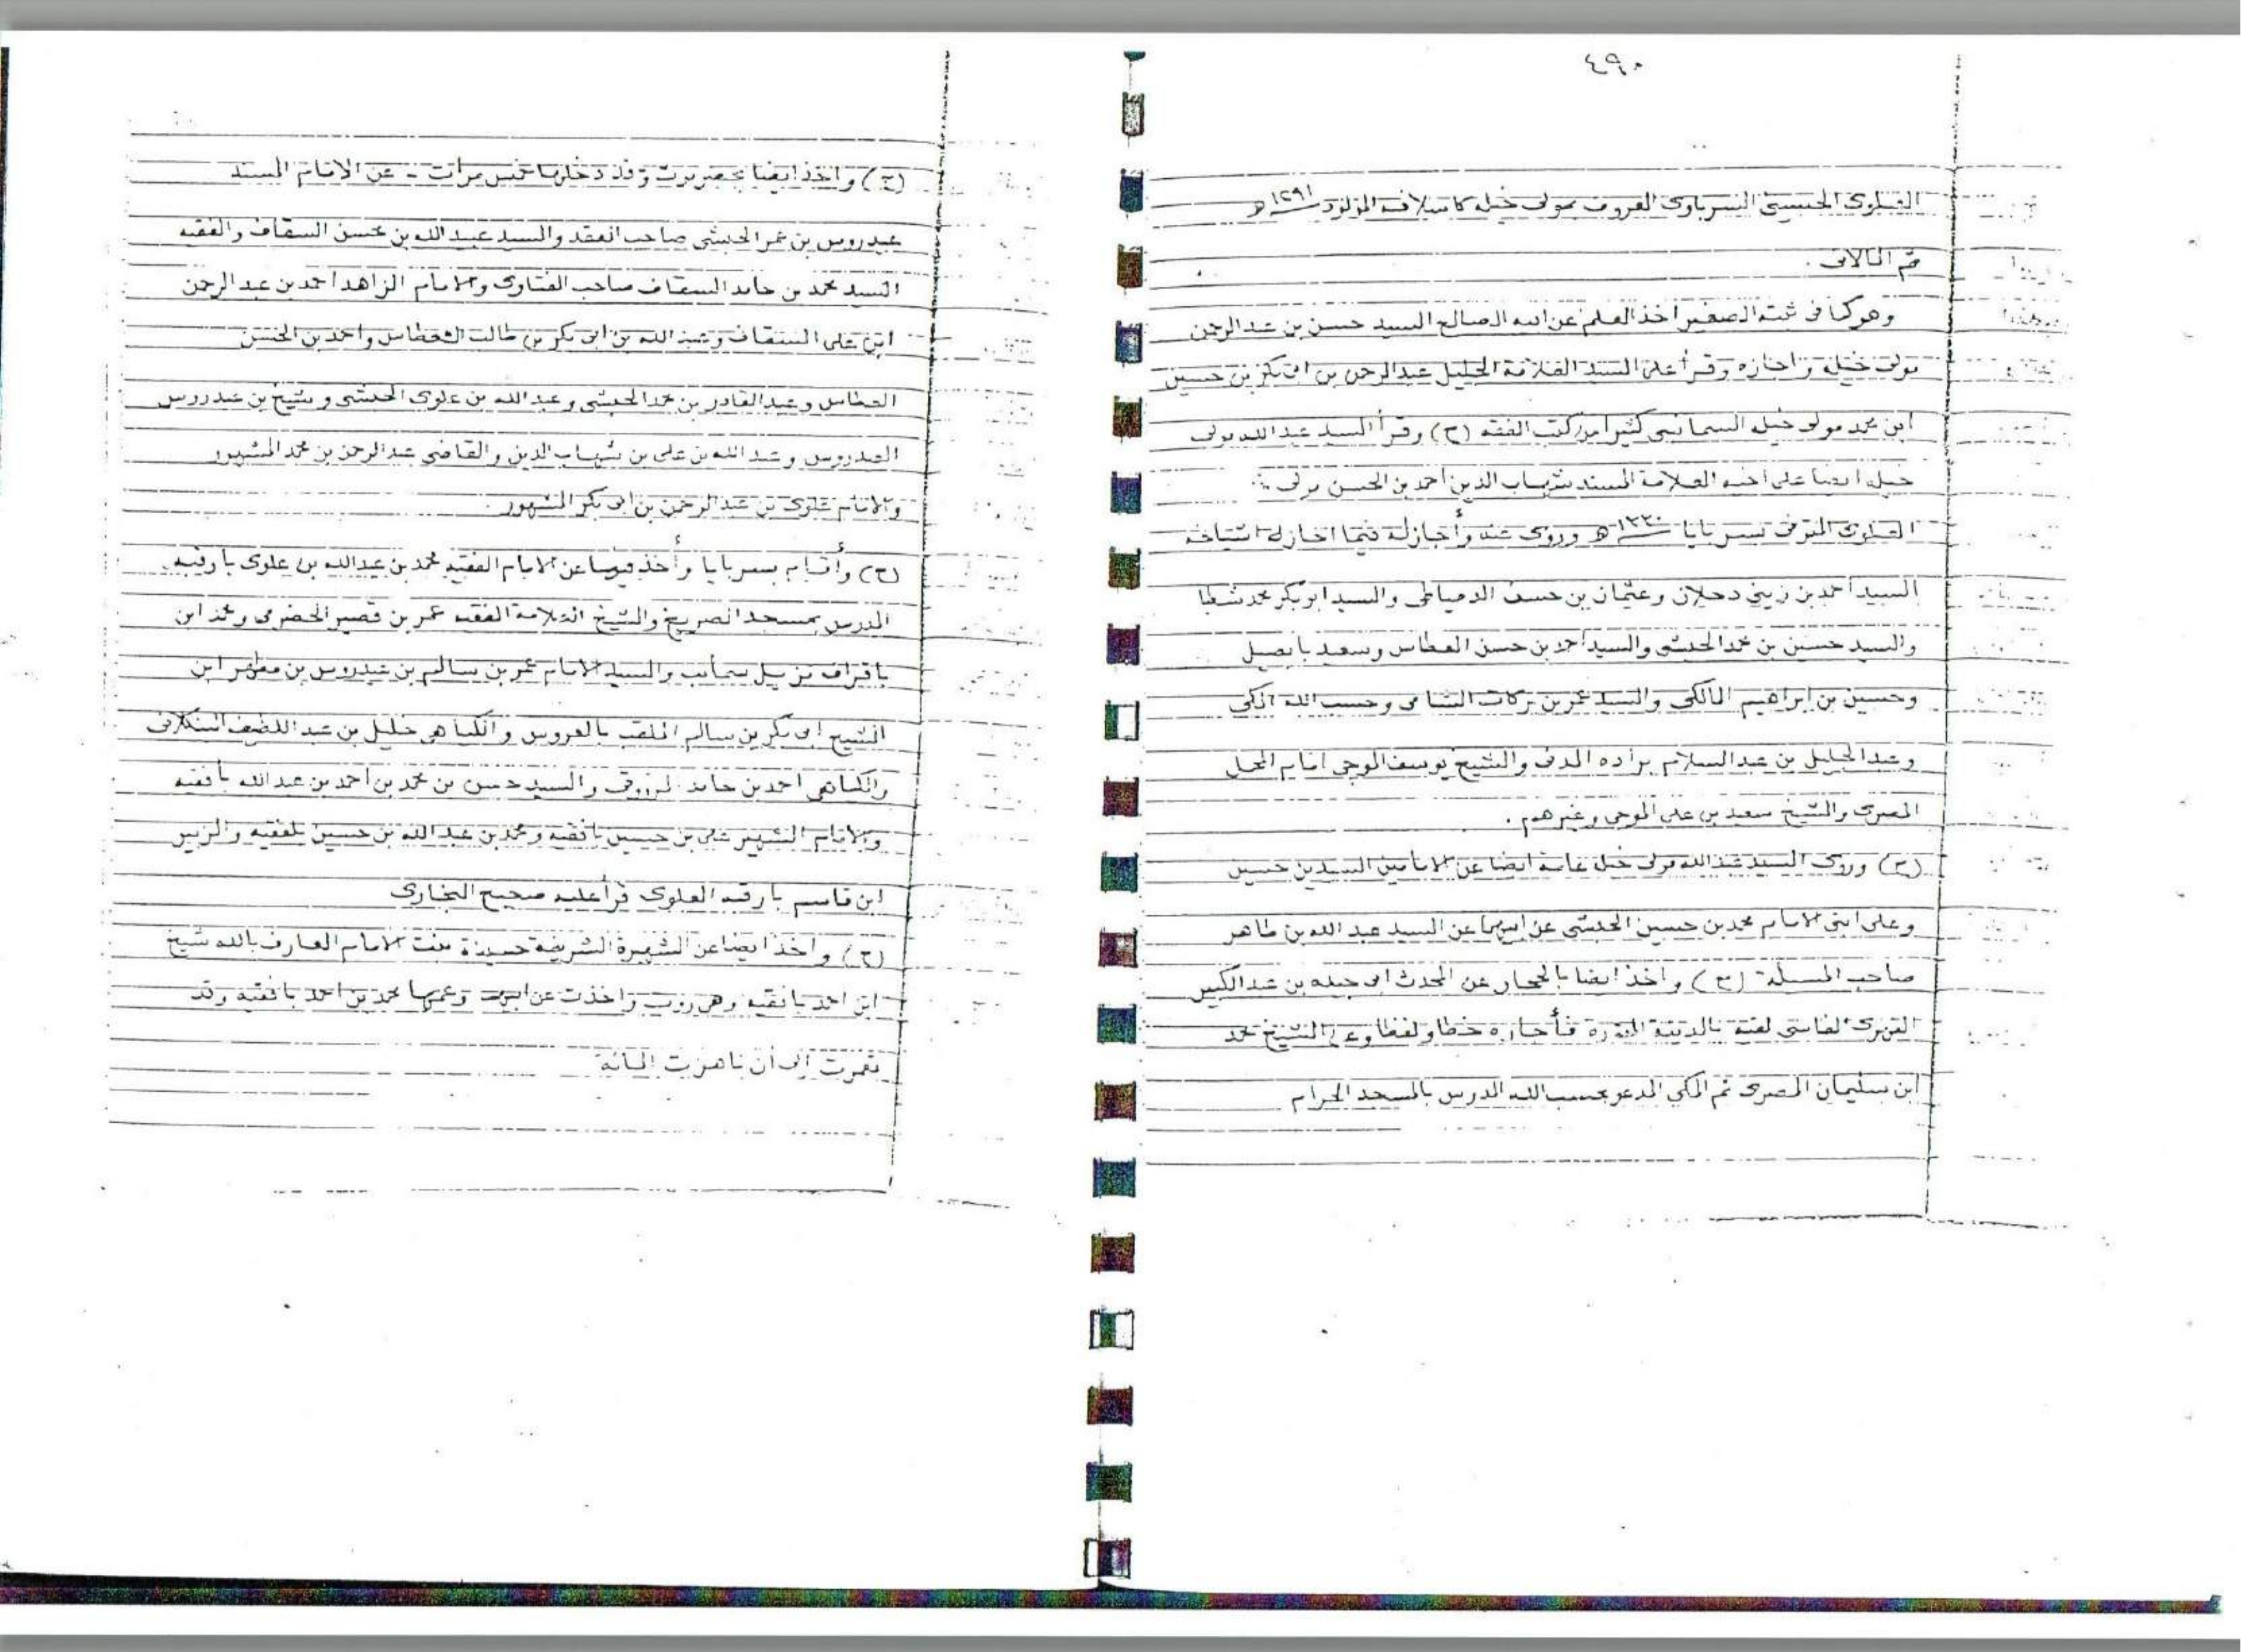 ٤٩٠
العلوي الحسيني السرباوي المعروف بمولى خيله كأسلافه المولود ١٢٩١هـ
وهو كما في ثبته الصغير اخذ العلم عن ابيه الصالح السيد حسن بن عبدالرحمن
مولى خيله واجازه وقرأ على السيد العلامة الجليل عبدالرحمن بن ابى بكر بن حسين
ابن محمد مولى خيله السمانبى كثيرا من كتب الفقه (ح) وقرأ السيد عبد الله مولى
خيله ايضا على اخيه العلامة المسند شهاب الدين احمد بن الحسن مولى
العلوى المتوفى بسربايا ١٣٣٠هـ وروى عنه وأجاز له فيما اجاز له اشياخه
السيد احمد بن زيني دحلان وعثمان بن حسن الدمياطى والسيد ابو بكر محمد شطا
والسيد حسين بن محمد الحبشى والسيد احمد بن حسن العطاس وسعيد بابصيل
وحسين بن ابراهيم المالكى والسيد عمر بن بركات الشامى وحسب الله المكى
وعبد الجليل بن عبد السلام براده المدنى والشيخ يوسف الموجى امام المحل
المصرى والشيخ سعيد بن على الموجى وغيرهم .
(ح) وروى السيد عبد الله مولى خيله عامة ايضا عن الامامين السيدين حسين
وعلى ابنى الامام محمد بن حسين الحبشى عن ابيهما عن السيد عبد الله بن طاهر
صاحب المسيلة (ح) واخذ ايضا بالحجاز عن المحدث ابى جيده بن عبد الكبير
الفاسى لقيه بالمدينة المنورة فأجازه خطا ولفظا وعن الشيخ محمد
ابن سليمان المصرى ثم المكى المدعو بحسب الله المدرس بالمسجد الحرام
(ح) واخذ ايضا بحضرموت وقد دخلها خمس مرات - عن الامام السيد
عيدروس بن عمر الحبشى صاحب العقد والسيد عبيد الله بن محسن السقاف والفقيه
السيد محمد بن حامد السقاف صاحب الفتاوى والامام الزاهد احمد بن عبد الرحمن
ابن على السقاف وعبد الله بن ابى بكر بن طالب العطاس واحمد بن الحسن
العطاس وعبد القادر بن محمد الحبشى وعبد الله بن علوى الحبشى وشيخ بن عيدروس
العيدروس وعبد الله بن على بن شهاب الدين والقاضى عبد الرحمن بن محمد المشهور
والامام علوى بن عبد الرحمن بن ابى بكر المشهور .
(ح) وأقام بسربايا وأخذ فيها عن الامام الفقيه محمد بن عبد الله بن علوى بارقبه
المدرس بمسجد والشيخ العلامة الفقيه عمر بن قصير الحضرمى ومحمد ابن
نزيل والسيد الامام عمر بن سالم بن عيدروس بن مطهر ابن
الشيخ ابى بكر بن سالم الملقب بالعروس والكياهى خليل بن عبد اللطيف البنكلانى
والكياهى احمد بن حامد والسيد حسن بن محمد بن احمد بن عبد الله بافقيه
والامام الشهير على بن حسين بافقيه ومحمد بن عبد الله بن حسين بلفقيه والزبير
ابن قاسم بارقبه العلوى قرأ عليه صحيح البخارى
(ح) واخذ ايضا عن الشهيرة الشريفة بنت الامام العارف بالله شيخ
ابن احمد بافقيه وهى واخذت عن ابيها وعمها محمد بن احمد بافقيه وقد
عمرت الى أن ناهزت المائة